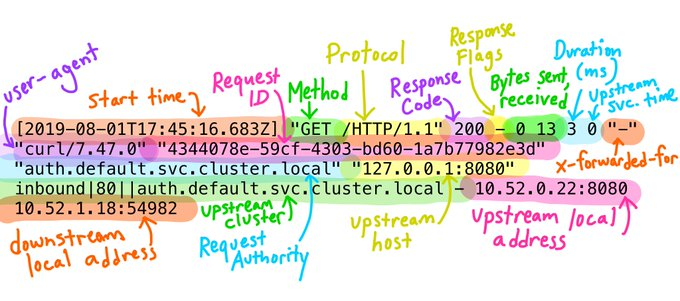 user-agent
Start time
Request ID
Method
Protocol
Response Code
Response Flags
Bytes sent, received
Duration (ms)
upstream svc. time
[2019-08-01T17:45:16.683Z] "GET /HTTP/1.1" 200 – 0 13 3 0 "–"
"curl/7.47.0" "4344078e-59cf-4303-bd60-1a7b77982e3d"
"auth.default.svc.cluster.local" "127.0.0.1:8080"
inbound|80||auth.default.svc.cluster.local – 10.52.0.22:8080
10.52.1.18:54982
x-forwarded-for
downstream local address
upstream cluster
Request Authority
upstream host
upstream local address